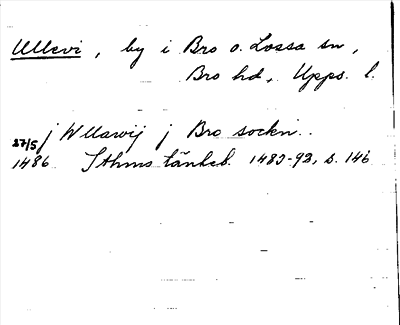 Ullevi, by i Bro o. Lossa sn,
Bro hd, Upps. l.
27/5 j Wllawij j Bro sockn..
1486 Sthms tänkeb. 1483-92, s. 146